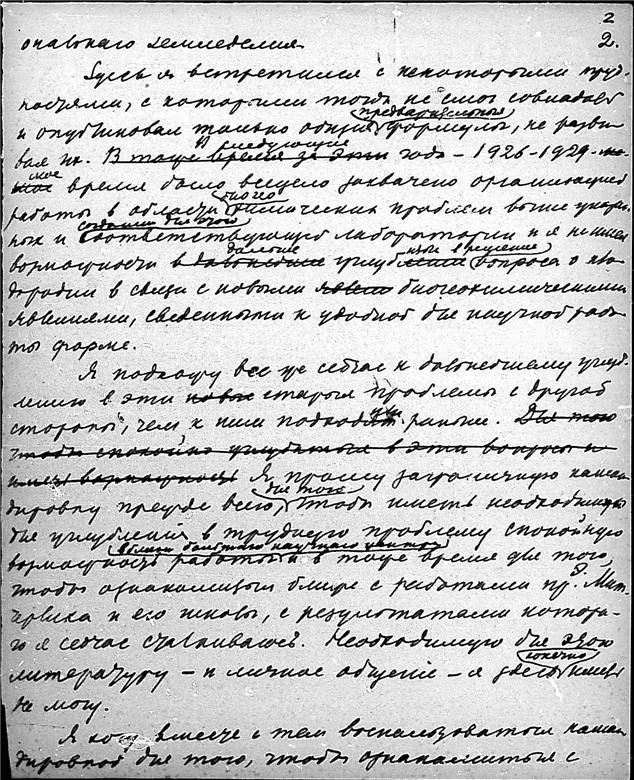 2
2.
онального земледелия.
Здесь я встретился с некоторыми труд-
ностями, с которыми тогда не смог совладать
предварительные
и опубликовал только общие формулы, не разви-
В следующие
вая их. В то же время за эти года – 1926-1929 мо-
мое
время было всецело захвачено организацией
биогео
работы в области химических проблем выше указан-
создания для этого
ных и соответствующей лаборатории и я не имел
дальше
возможности в дальнейшие углубление вопроса о
в связи с новыми явлен биогеохимическими
явлениями, сведенными к удобной для научной рабо-
ты форме.
Я подхожу все же сейчас к дальнейшему углуб-
лению в эти новые старые проблемы с другой
стороны, чем к ним подходил раньше. Для того
чтобы спокойно углубиться в эти вопросы и
иметь возможность Я прошу заграничную коман-
для того
дировку прежде всего чтобы иметь необходимую
для углубления в трудную проблему спокойную
вблизи большого научного центра
возможность работать и в то же время для того,
чтобы ознакомиться ближе с работами пр.
и его школы, с результатами которо-
го я сейчас сталкиваюсь. Необходимую для этого
конечно
литературу – и личное общение – я здесь иметь
не могу.
Я хочу вместе с тем воспользоваться коман-
дировкой для того, чтобы ознакомиться с